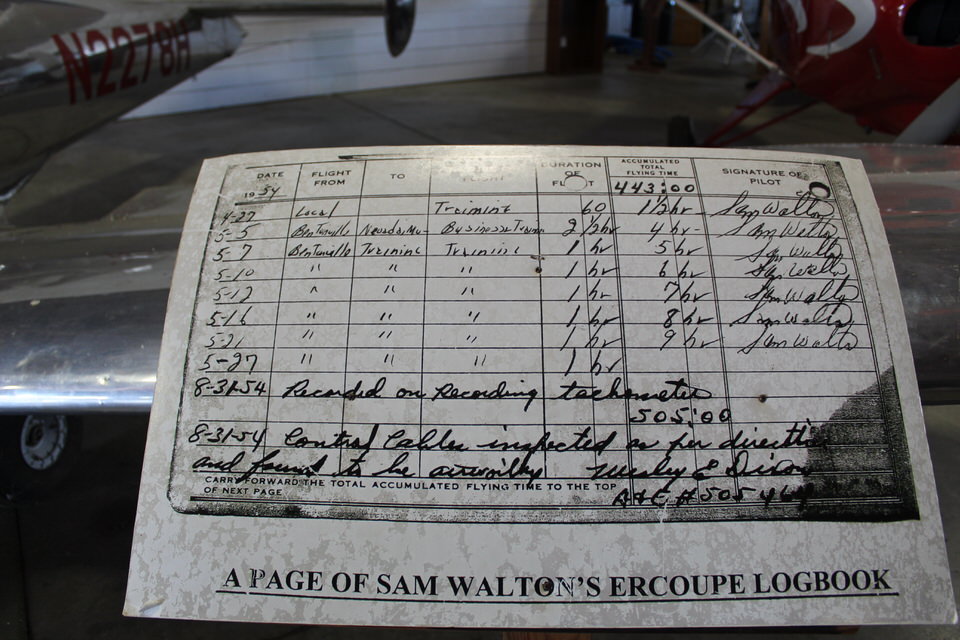 N2278H
DATE FLIGHT FROM TO FLIGHT DURATION OF FLIGHT ACCUMULATED TOTAL FLYING TIME SIGNATURE OF PILOT
1954 443:00
4-27 Local Training 60 1 1/2hr Sam Walton
5-5 Bentonville Business 2 1/2hr 4 hr Sam Walton
5-7 Bentonville Training Training 1 hr 5 hr Sam Walton
5-10 " " " 1 hr 6 hr Sam Walton
5-12 " " " 1 hr 7 hr Sam Walton
5-16 " " " 1 hr 8 hr Sam Walton
5-21 " " " 1 hr 9 hr Sam Walton
5-27 " " " 1 hr
8-31-54 Recorded on Recording tachometer
505:00
8-31-54 Control Cables inspected as per
and found to be airworthy Wesley E Dixon
CARRY FORWARD THE TOTAL ACCUMULATED FLYING TIME TO THE TOP
OF NEXT PAGE A&E #505
A PAGE OF SAM WALTON'S ERCOUPE LOGBOOK